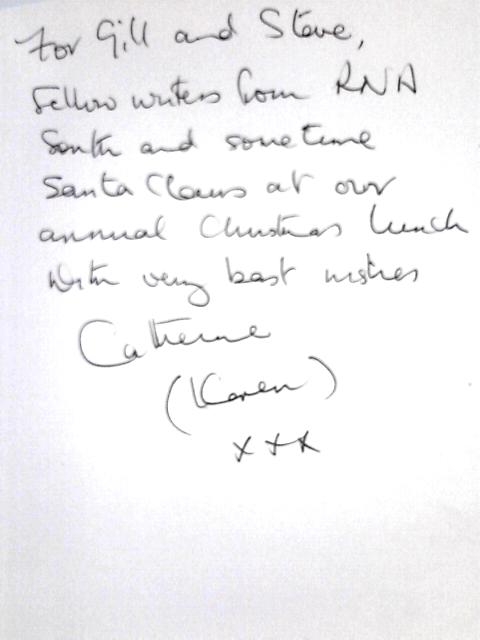 For Gill and Steve,
Fellow writers from RNA
South and sometime
Santa Claus at our
annual Christmas lunch
With very best wishes
Catherine
(Karen)
x x x